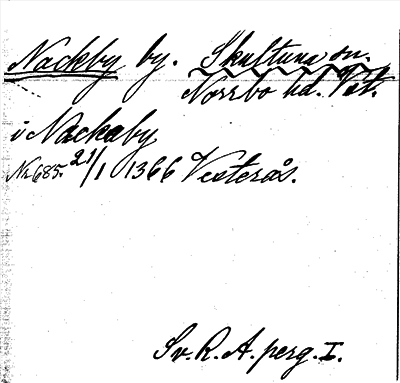 Nackby by. Skultuna sn.
Norrbo hd. Vstm.
i Nackaby
Nr 685. 21/1 1366 Vesterås.
Sv. R. A. perg. I.